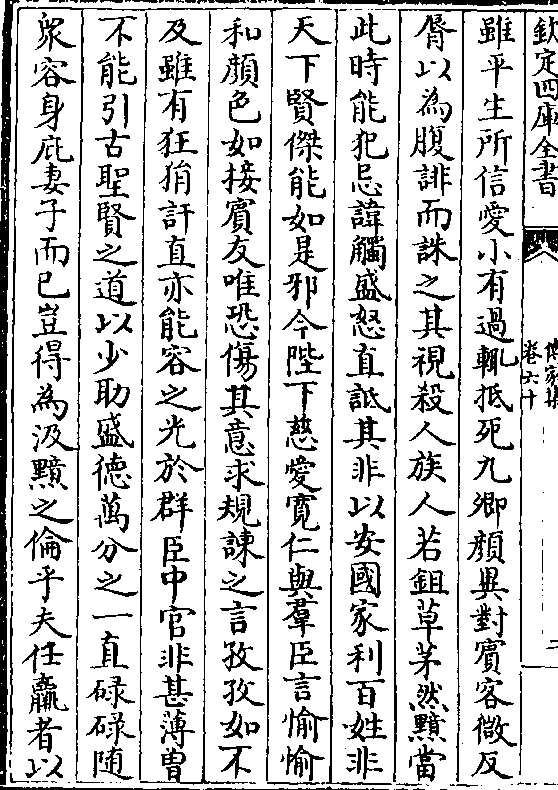 欽定四庫全書
傳家集
卷六十
二
雖平生所信愛小有過輒抵死九卿顔異對賓客微反
脣以為腹誹而誅之其視殺人族人若鉏草茅然黯當
此時能犯忌諱觸盛怒直詆其非以安國家利百姓非
天下賢傑能如是邪今陛下慈愛寛仁與羣臣言愉愉
和顔色如接賓友唯恐傷其意求規諫之言孜孜如不
及雖有狂狷訐直亦能容之光於群臣中官非甚薄曽
不能引古聖賢之道以少助盛德萬分之一直碌碌随
衆容身庇妻子而已豈得為汲黯之倫乎夫任羸者以